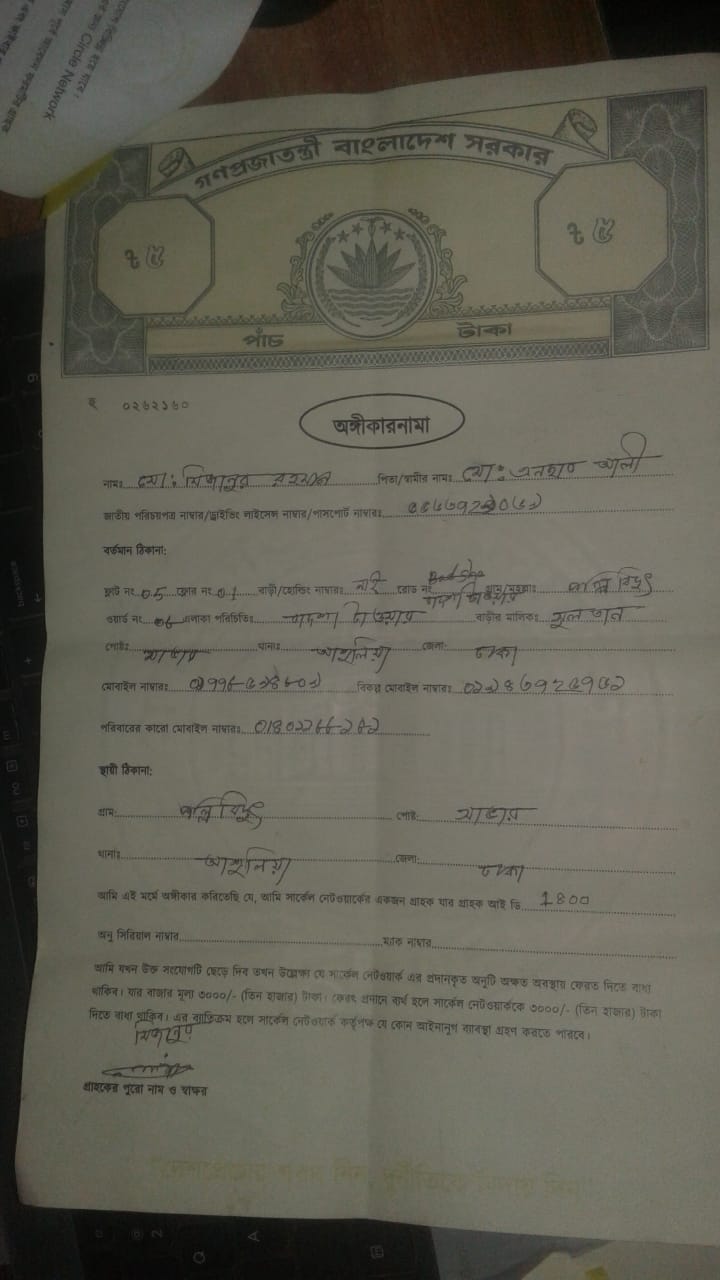 Circle Network
গণপ্রজাতন্ত্রী বাংলাদেশ সরকার
৳ ৫ ৳ ৫
পাঁচ টাকা
০২৬২১৬০
অঙ্গীকারনামা
নামঃ মো: মিজানুর রহমান পিতা/স্বামীর নামঃ মো: আলী
জাতীয় পরিচয়পত্র নাম্বার/ড্রাইভিং লাইসেন্স নাম্বার/পাসপোর্ট নাম্বারঃ
বর্তমান ঠিকানা:
ফ্লাট নং 05 ফ্লোর নং 01 বাড়ী/হোল্ডিং নাম্বারঃ নাই রোড নং গ্রাম/মহল্লাঃ পল্লি বিদ্যুৎ
ওয়ার্ড নং 06 এলাকা পরিচিতিঃ বাদশা টাওয়ার বাড়ীর মালিকঃ সুলতান
পোষ্টঃ সাভার থানাঃ আশুলিয়া জেলা: ঢাকা
মোবাইল নাম্বারঃ বিকল্প মোবাইল নাম্বারঃ
পরিবারের কারো মোবাইল নাম্বারঃ
স্থায়ী ঠিকানা:
গ্রাম: পল্লি বিদ্যুৎ পোষ্ট: সাভার
থানাঃ আশুলিয়া জেলা: ঢাকা
আমি এই মর্মে অঙ্গীকার করিতেছি যে, আমি সার্কেল নেটওয়ার্কের একজন গ্রাহক যার গ্রাহক আই ডি 1800
অনু সিরিয়াল নাম্বার ম্যাক নাম্বার
আমি যখন উক্ত সংযোগটি ছেড়ে দিব তখন উল্লেক্ষ্য যে সার্কেল নেটওয়ার্ক এর প্রদানকৃত অনুটি অক্ষত অবস্থায় ফেরত দিতে বাধ্য
থাকিব। যার বাজার মূল্য ৩০০০/- (তিন হাজার) টাকা। ফেরৎ প্রদানে ব্যর্থ হলে সার্কেল নেটওয়ার্ককে ৩০০০/- (তিন হাজার) টাকা
দিতে বাধ্য থাকিব। এর ব্যতিক্রম হলে সার্কেল নেটওয়ার্ক কর্তৃপক্ষ যে কোন আইনানুগ ব্যবস্থা গ্রহণ করতে পারবে।
মিজানুর
গ্রাহকের পুরো নাম ও স্বাক্ষর